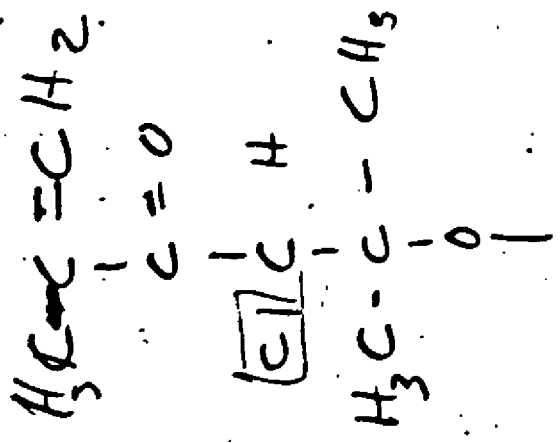 H₃C-C=CH₂
|
C=O
|
Cl C H
|
H₃C-C-CH₃
|
O
|